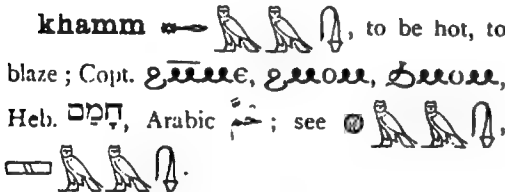 khamm 𓄡𓅓𓅓𓊮, to be hot, to
blaze ; Copt. ϩⲙ̅ⲙⲉ, ϩⲙⲟⲙ, ϧⲙⲟⲙ,
Heb. חָמַם, Arabic حَمَّ ; see 𓐍𓅓𓅓𓊮,
𓈙𓅓𓅓𓊮.